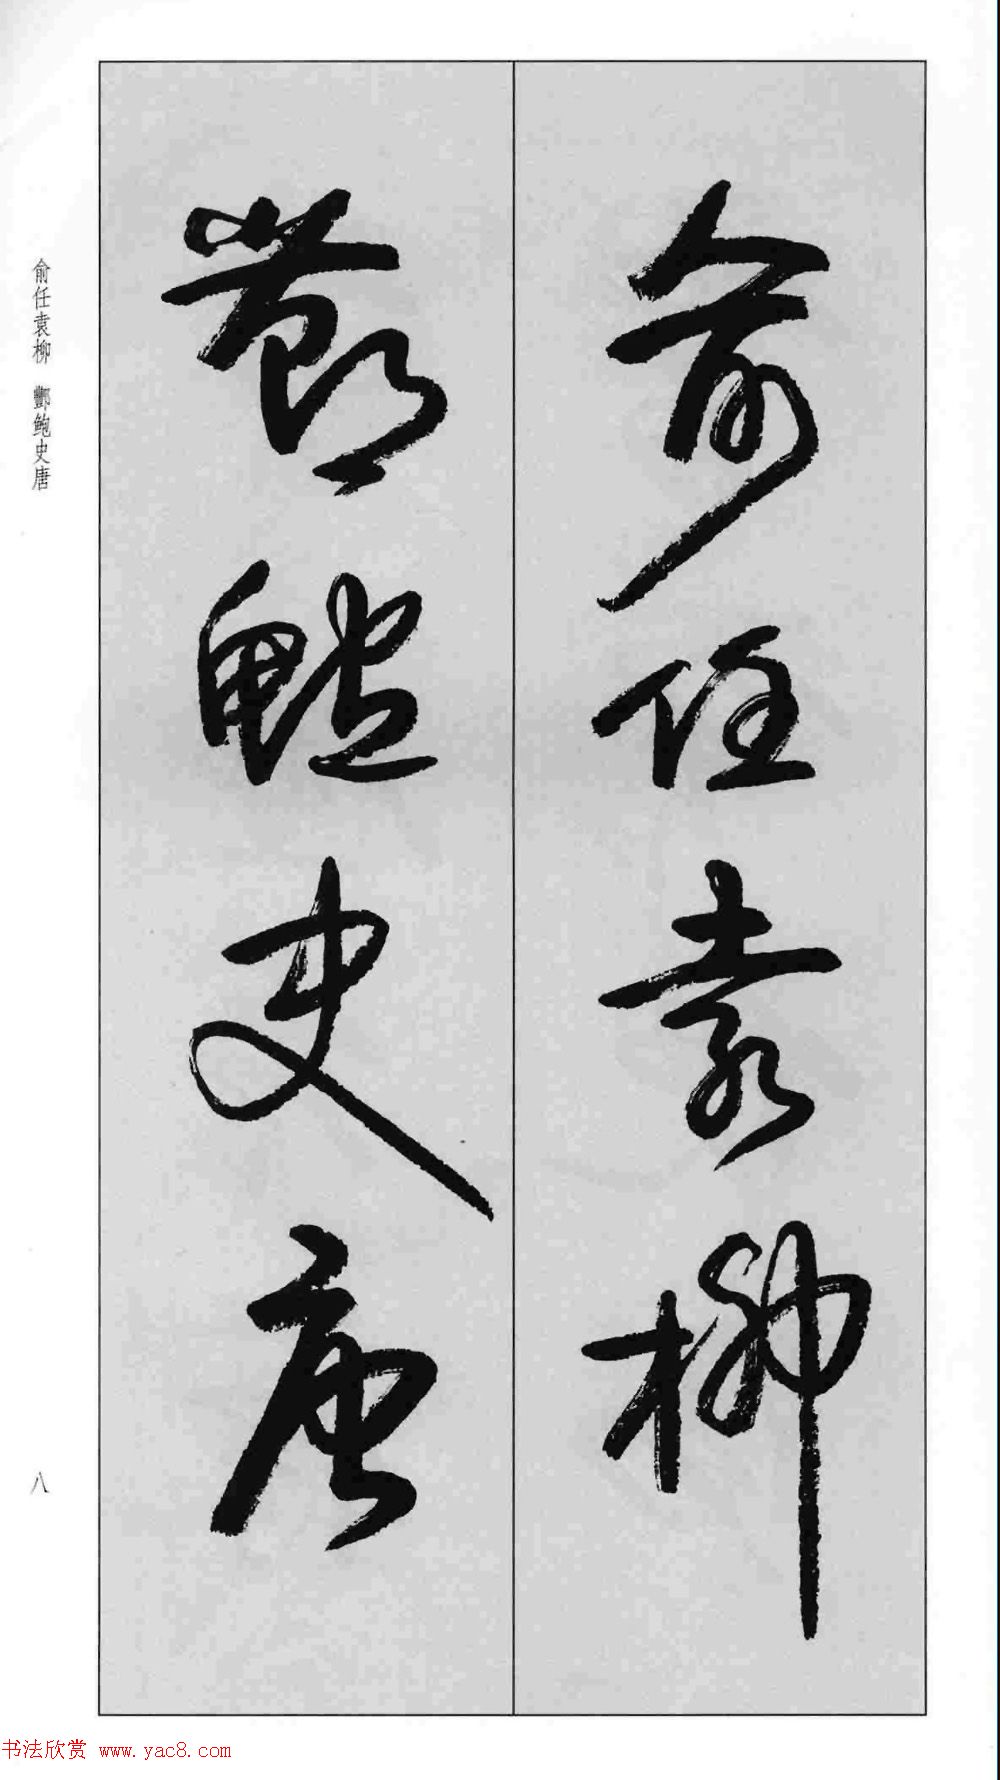 俞任袁柳
酆鲍史唐
俞任袁柳 酆鲍史唐
八
书法欣赏 www.yac8.com